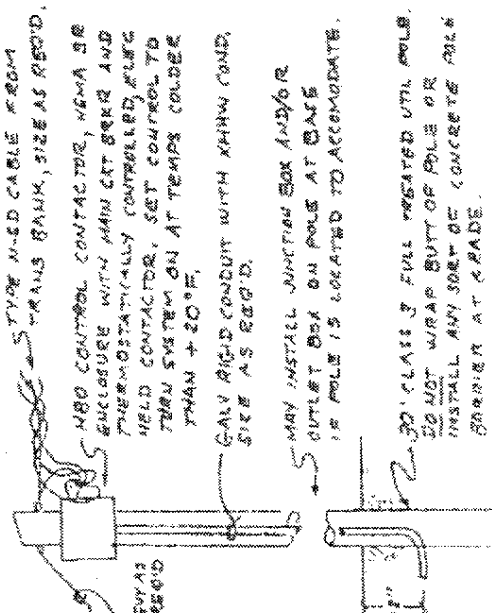 TYPE N-SD CABLE FROM
TRANS BANK, SIZE AS REQ'D.
HBO CONTROL CONTACTOR, NEMA 3R
ENCLOSURE WITH MAIN CKT BRKR AND
THERMOSTATICALLY CONTROLLED, ELEC
HELD CONTACTOR. SET CONTROL TO
TURN SYSTEM ON AT TEMPS COLDER
THAN +20°F.
GALV RIGID CONDUIT WITH XHHW COND,
SIZE AS REQ'D.
MAY INSTALL JUNCTION BOX AND/OR
OUTLET BOX ON POLE AT BASE
IF POLE IS LOCATED TO ACCOMODATE.
30' CLASS 3 FULL TREATED UTIL POLE.
DO NOT WRAP BUTT OF POLE OR
INSTALL ANY SORT OF CONCRETE
BARRIER AT GRADE.
GUY AS
REQ'D